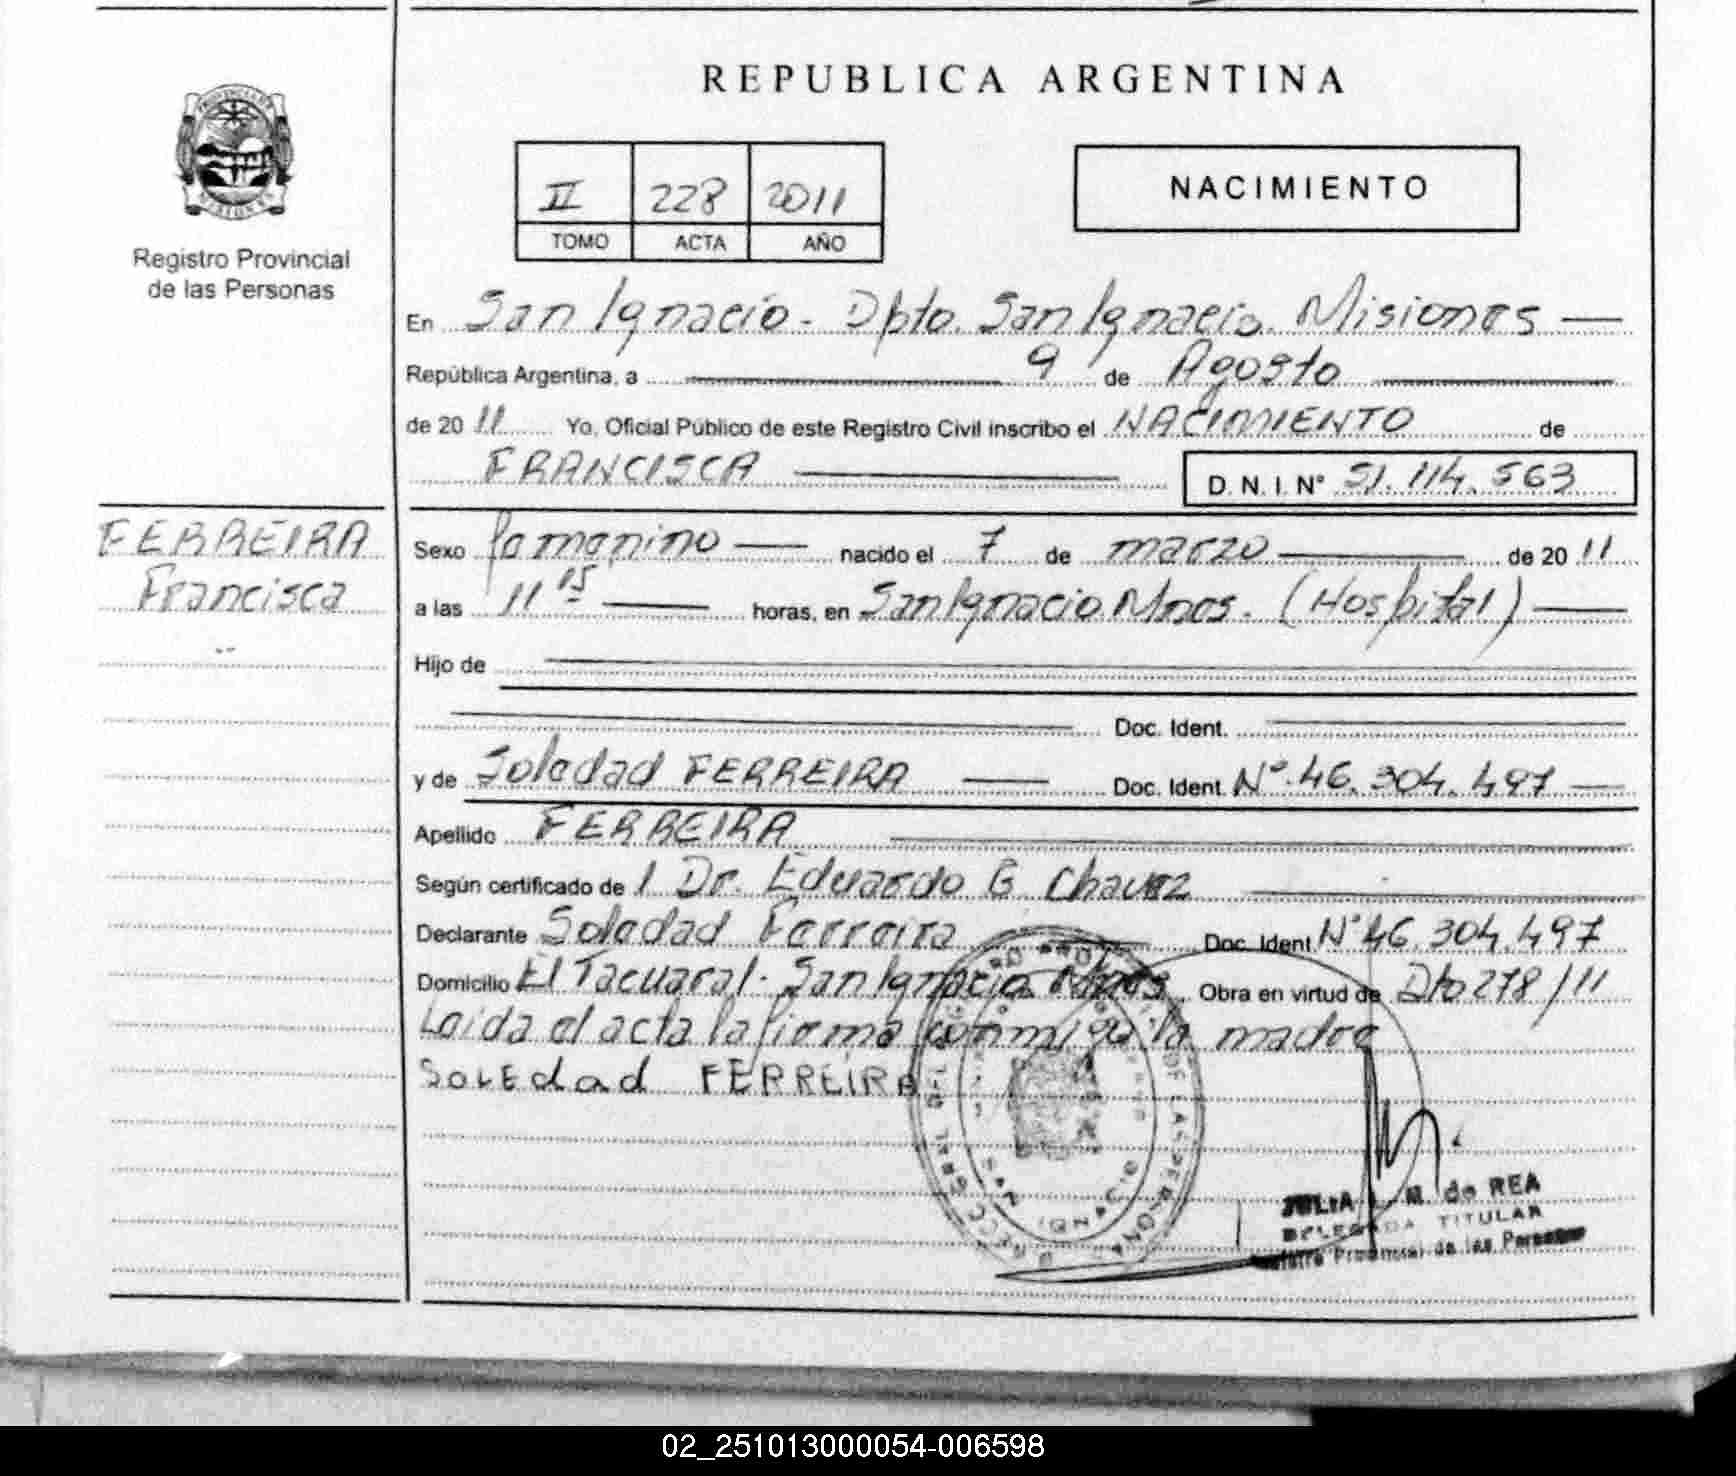 REPUBLICA ARGENTINA
II 228 2011
TOMO ACTA AÑO
NACIMIENTO
Registro Provincial
de las Personas
En San Ignacio - Dpto. San Ignacio. Misiones
República Argentina, a 9 de Agosto
de 20 11 Yo, Oficial Público de este Registro Civil inscribo el NACIMIENTO de
FRANCISCA D.N.I. N° 51.114.563
FERREIRA
Francisca
Sexo femenino nacido el 7 de marzo de 20 11
a las 11 15 horas, en San Ignacio Mnes. (Hospital)
Hijo de
Doc. Ident.
y de Soledad FERREIRA Doc. Ident. N° 46.304.497
Apellido FERREIRA
Según certificado de l Dr. Eduardo G Chavez
Declarante Soledad Ferreira Doc. Ident N° 46.304.497
Domicilio El Tacuaral - San Ignacio Mnes Obra en virtud de Dto 278/11
Leida el acta la firma conmigo la madre
SOLEdad FERREIRA
SAN IGNACIO
JULIA M. de REA
DELEGADA TITULAR
Provincial de las Personas
02_251013000054-006598